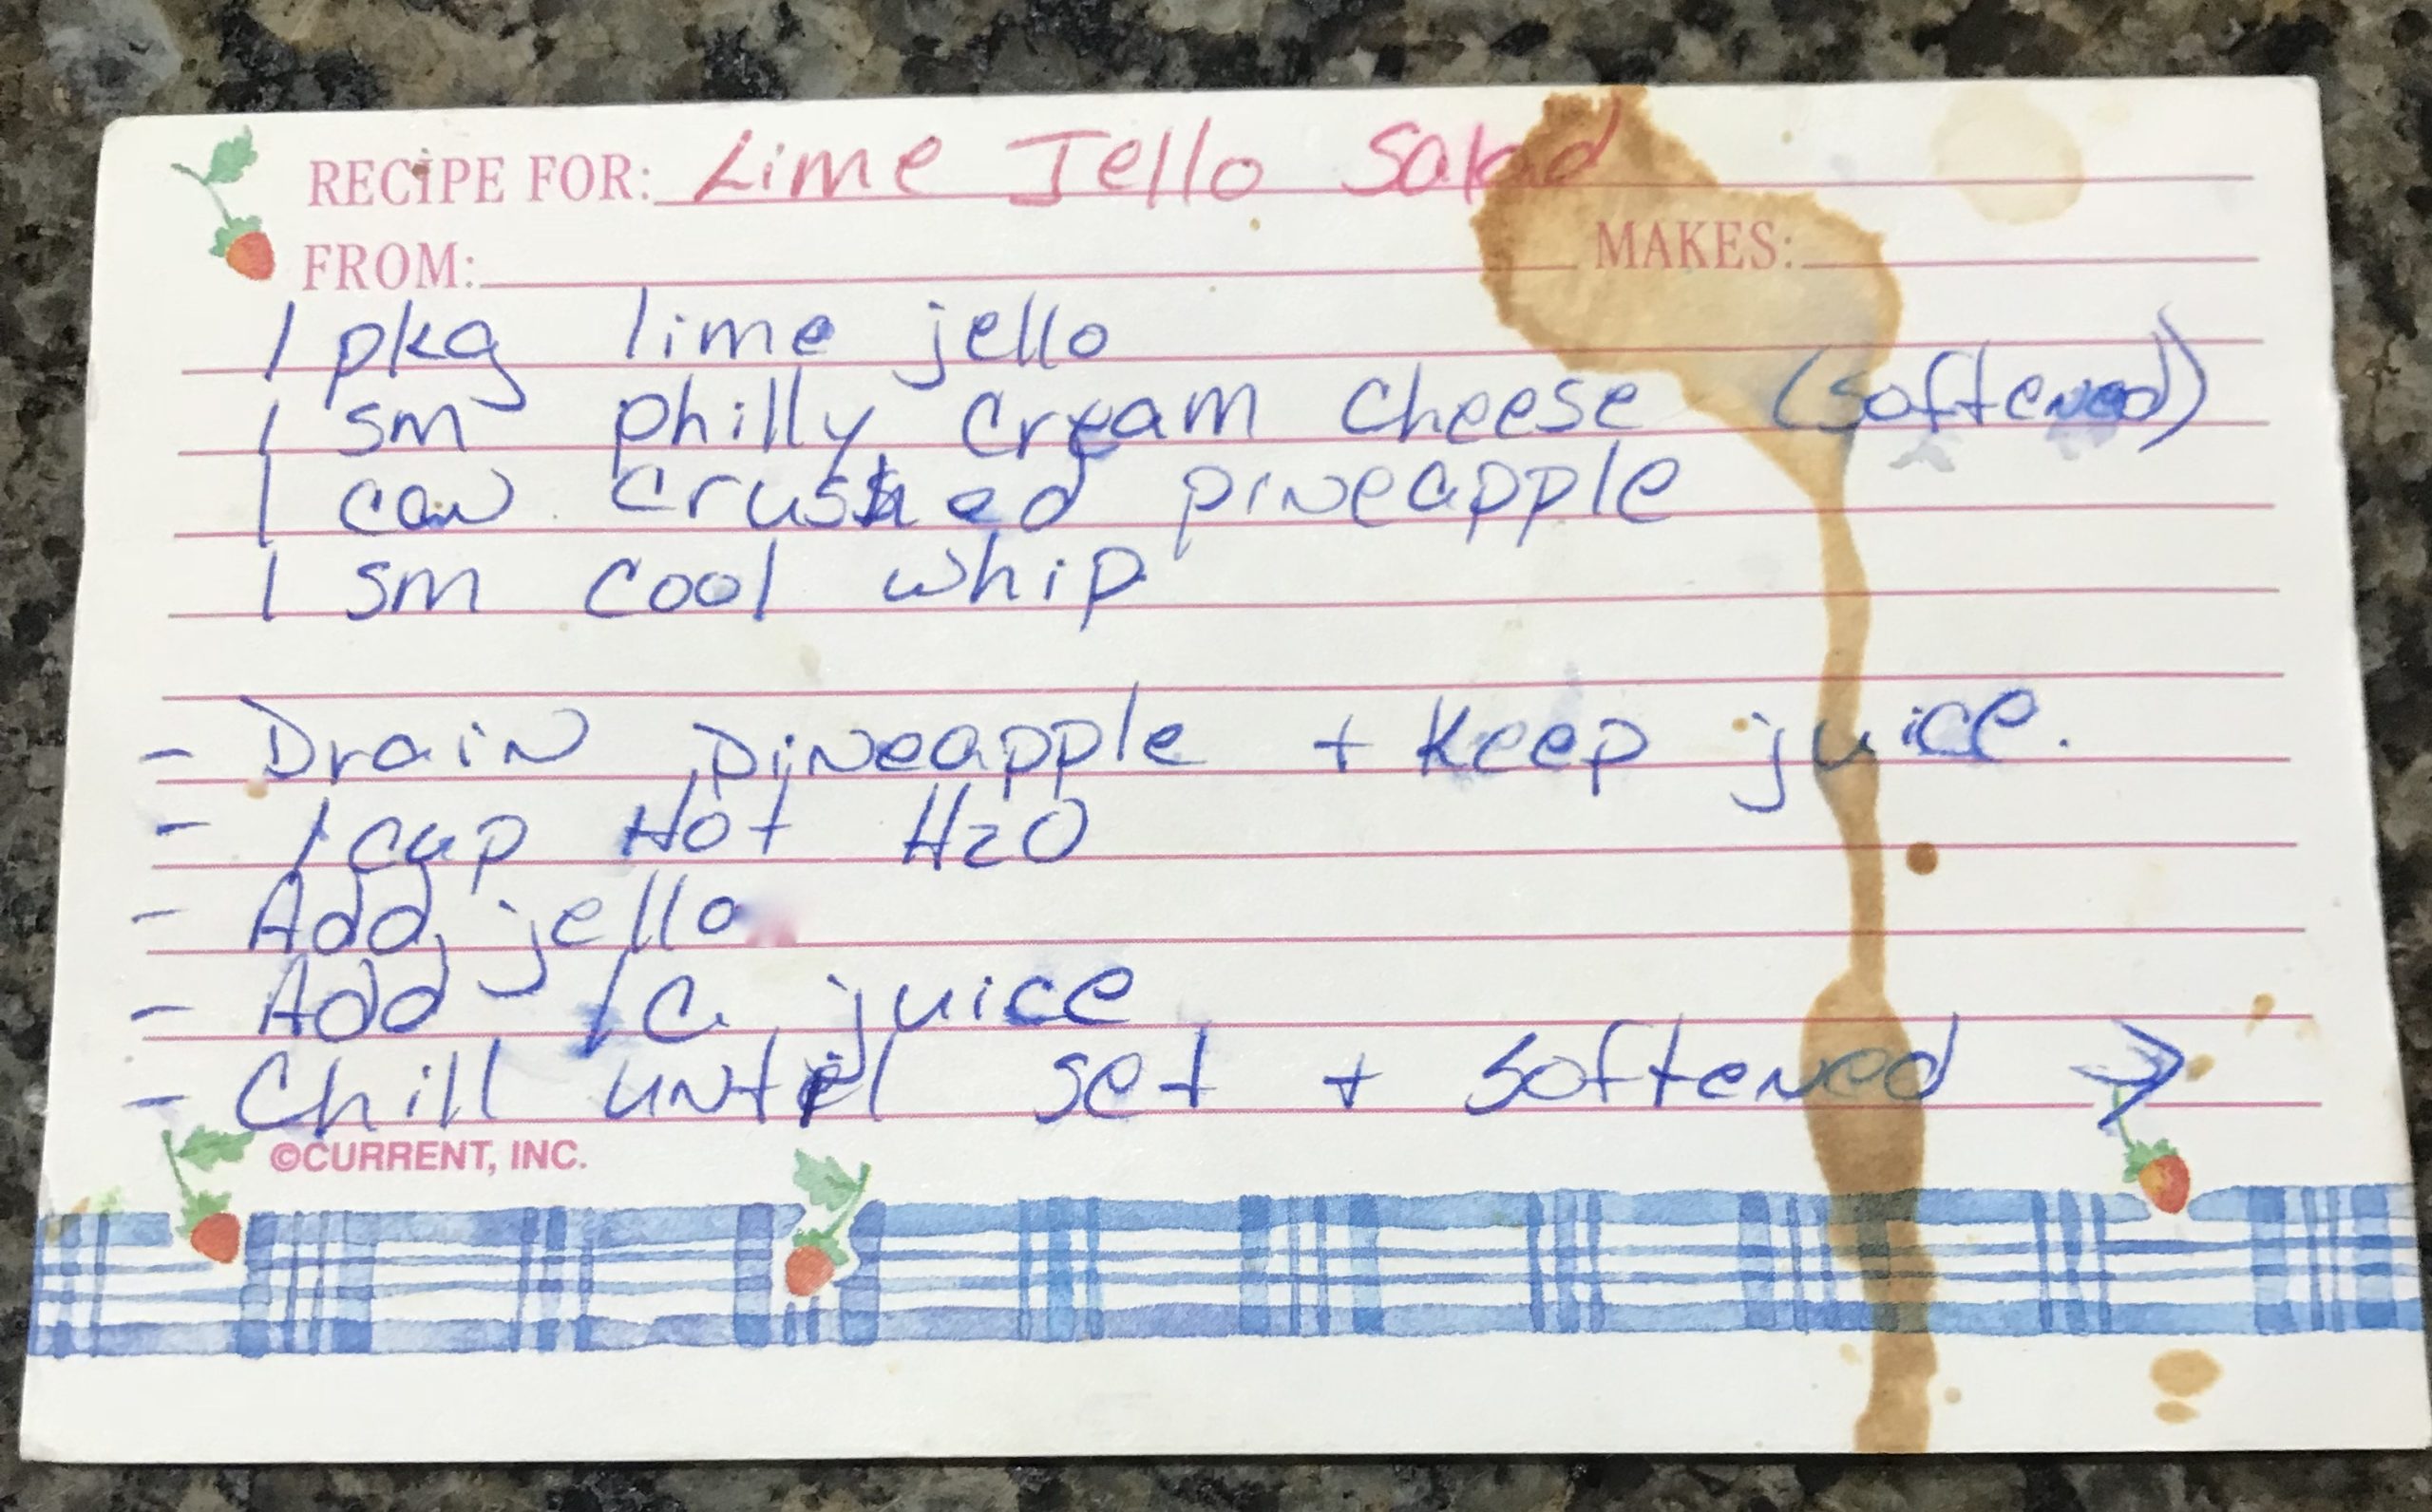 RECIPE FOR: Lime Jello Salad
FROM: MAKES:
1 pkg lime jello
1 sm philly cream cheese (softened)
1 can crushed pineapple
1 sm cool whip
- Drain pineapple + keep juice.
- 1 cup Hot H2O
- Add jello
- Add 1 C. juice
- Chill until set + softened →
©CURRENT, INC.